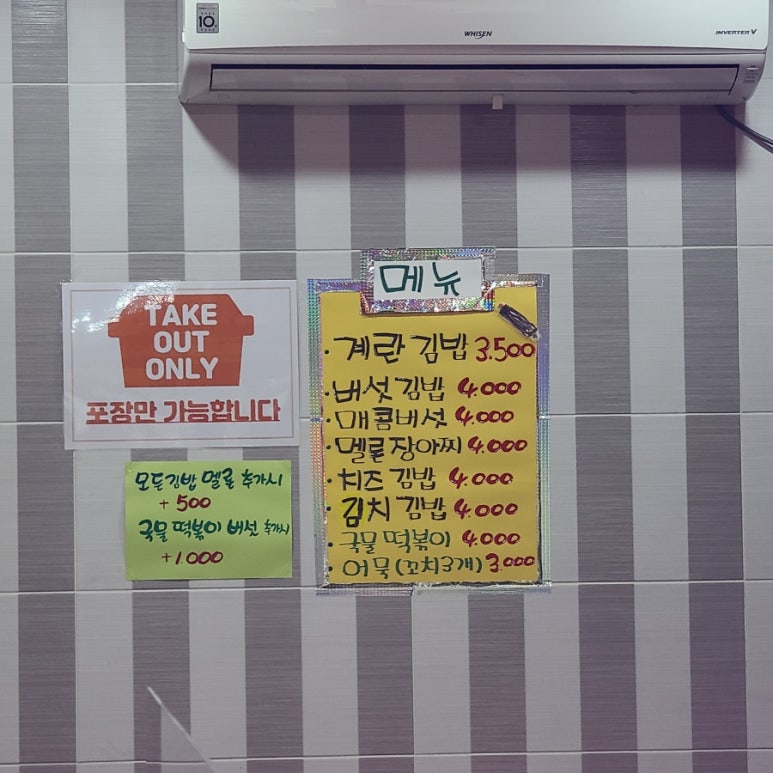 10
WHISEN
INVERTER V
TAKE
OUT
ONLY
포장만 가능합니다
모든김밥 멜론 추가시
+500
국물 떡볶이 버섯 추가시
+1000
메뉴
·계란 김밥 3.500
·버섯김밥 4.000
·매콤버섯 4.000
·멜론장아찌 4.000
·치즈 김밥 4.000
·김치 김밥 4.000
·국물 떡볶이 4.000
·어묵(꼬치3개) 3.000